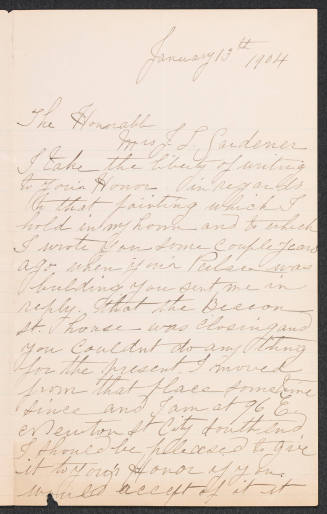 January 13th 1904
The Honorabll
Mrs J. L. Gardener
I take the liberty of writing
to Your Honor in regards
to that painting which I
hold in my home and to which
I wrote You some couple Years
ago when Your Palase was
building you sent me in
reply. that the Beacon
st. house was closing and
you couldnt do any thing
for the present I moved
from that place sometime
since and I am at 96 E
Newton St City South end
I should be pleased to give
it to Your Honor if you
would accept of it it